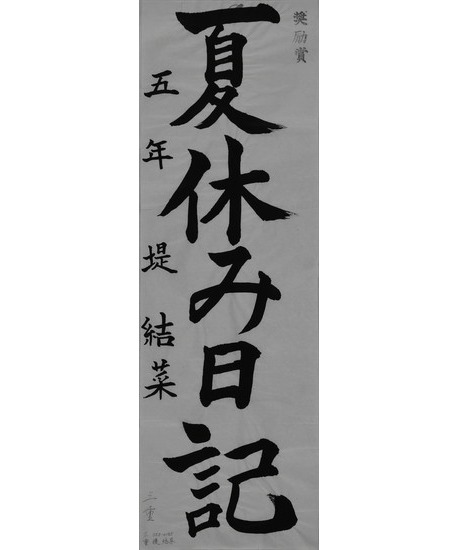 奨励賞
夏休み日記
五年 堤 結菜
三重